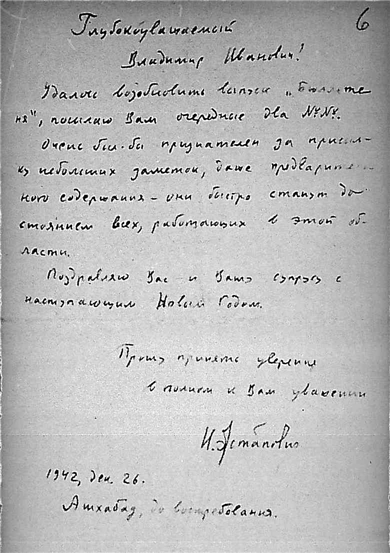 6
Глубокоуважаемый
Владимир Иванович!
Удалось возобновить выпуск „Бюллете
ня", посылаю Вам очередные два №№.
Очень был бы признателен за присыл-
ку небольших заметок, даже предварител
ного содержания – они быстро станут до
стоянием всех, работающих в этой об-
ласти.
Поздравляю Вас и Вашу супругу с
наступающим Новым Годом.
Прошу принять уверения
в полном к Вам уважении
И. Астапович
1942, дек. 26.
Ашхабад, до востребования.